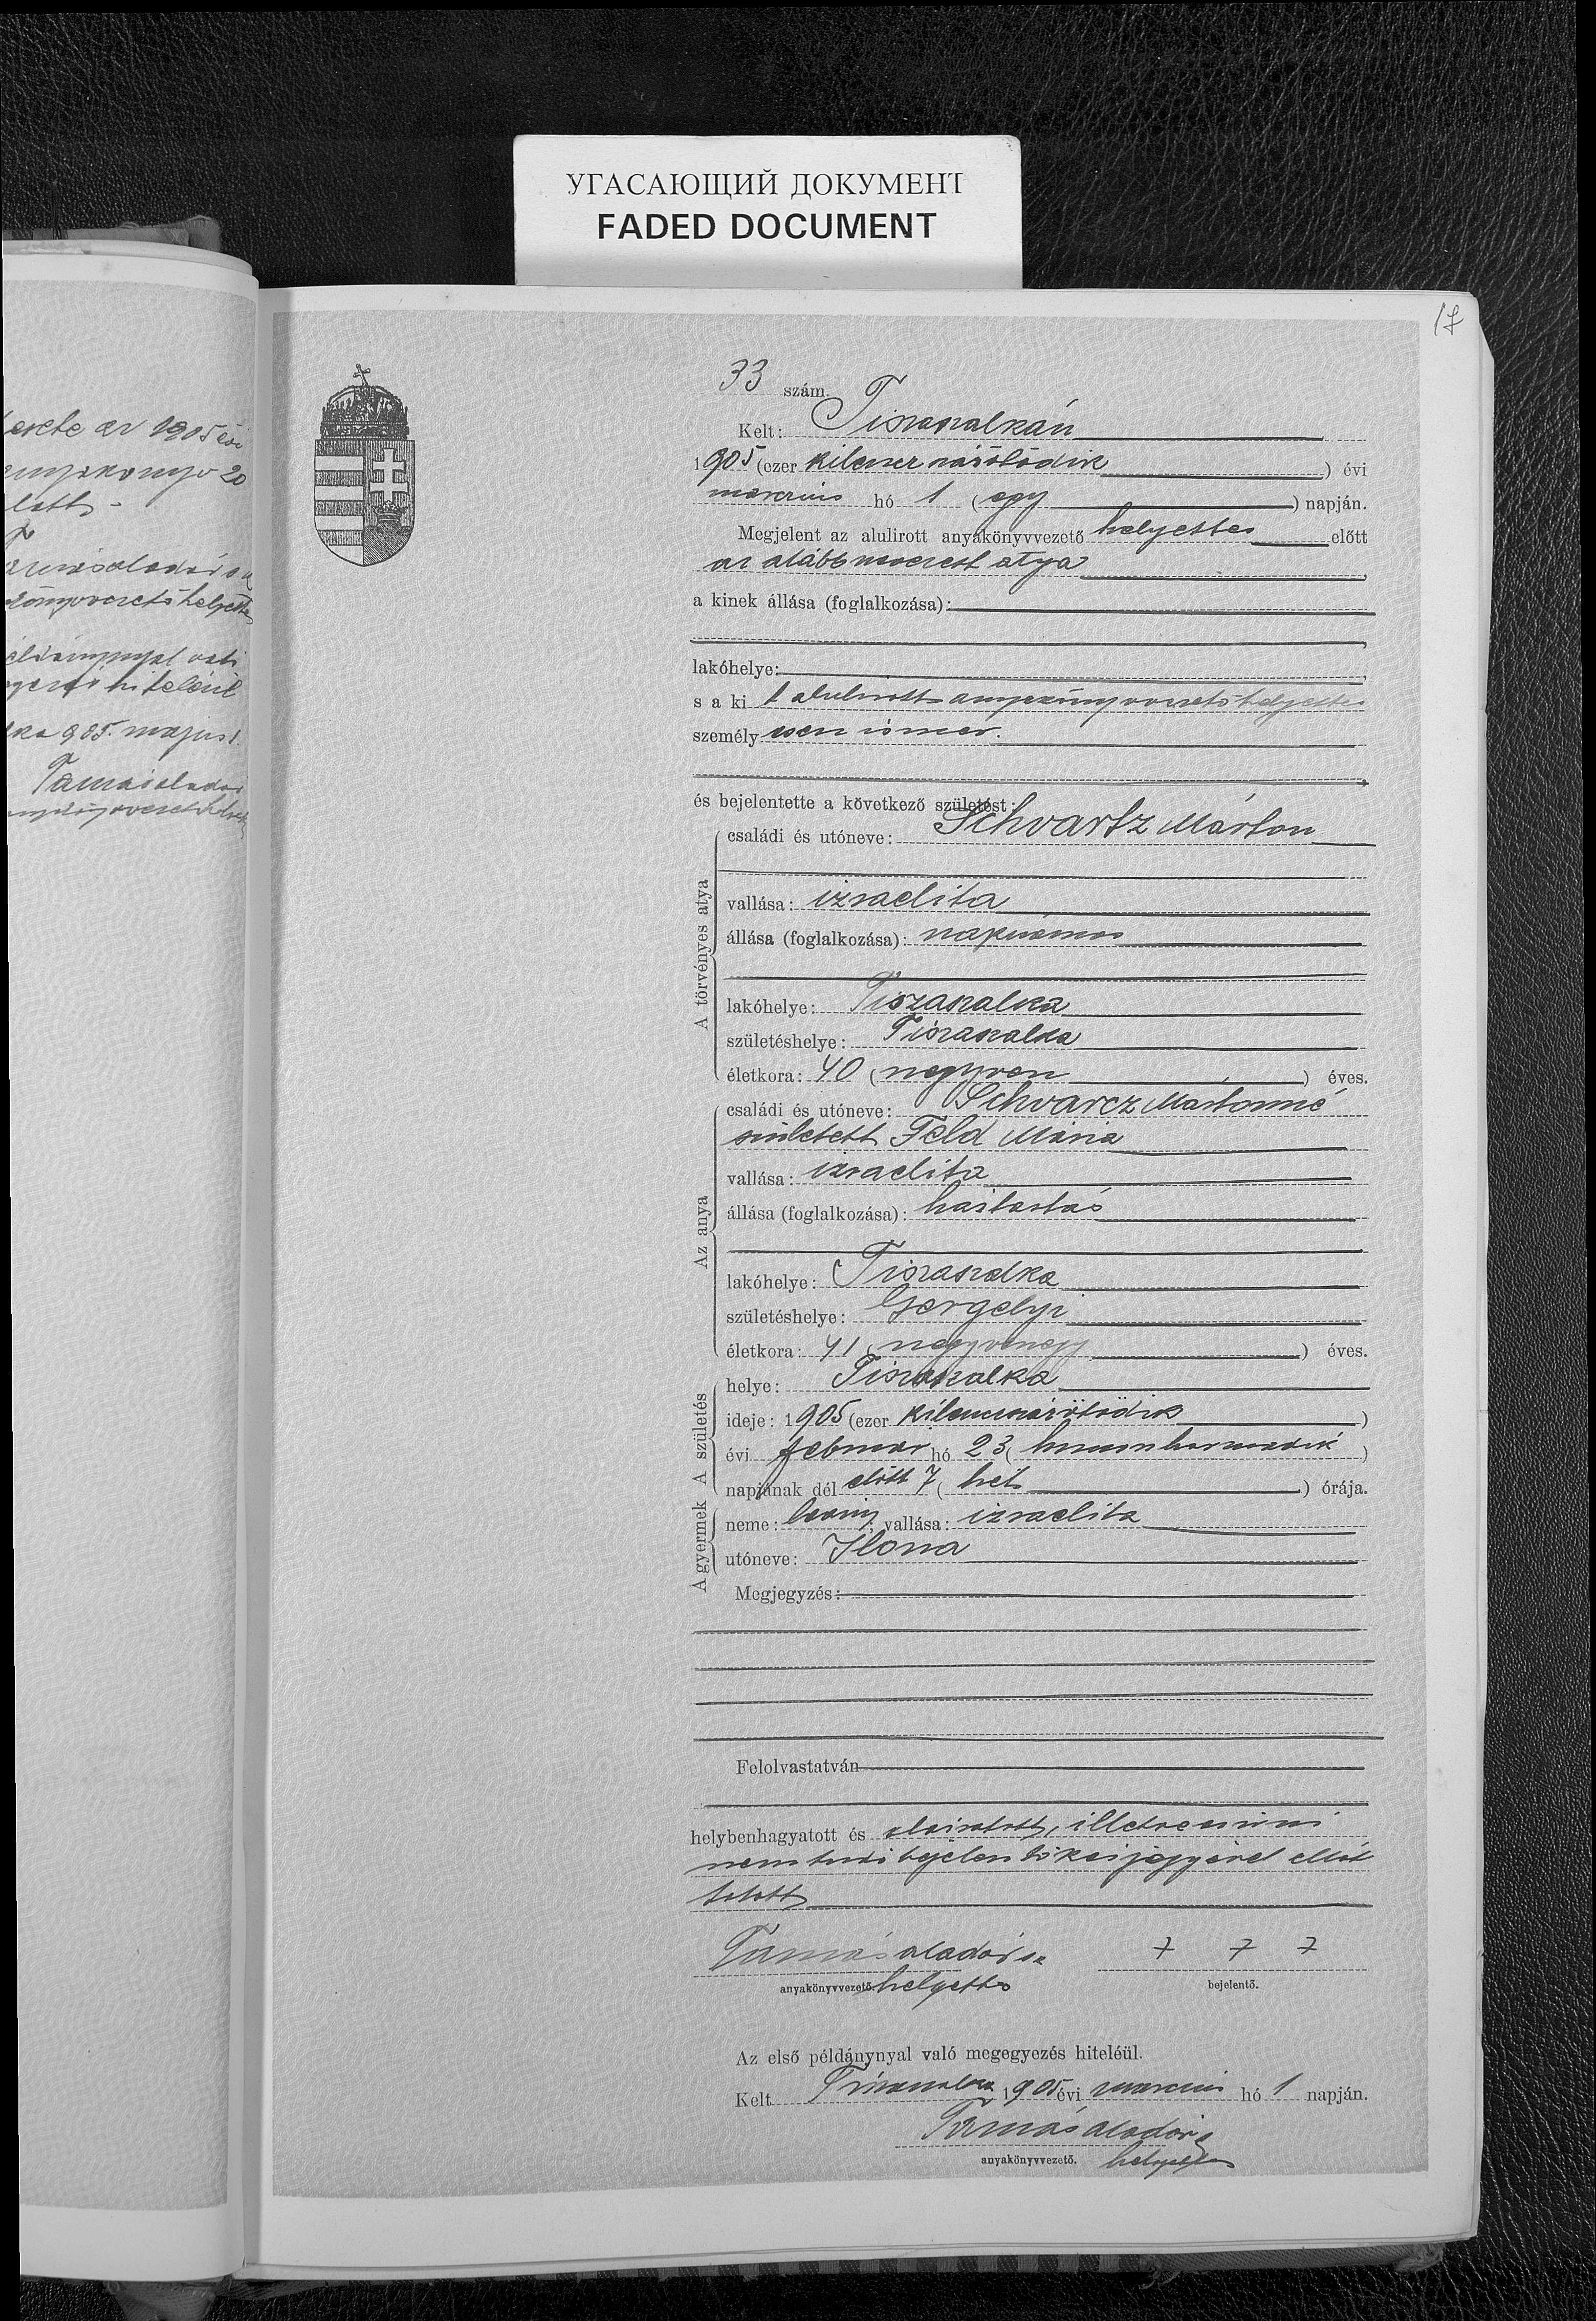 УГАСАЮЩИЙ ДОКУМЕНТ
FADED DOCUMENT
17
1905 évi
20
905. május 1.
33 szám.
Kelt: Tiszaszalkán
1905 (ezer kilenczszázötödik) évi
marczius hó 1 (egy) napján.
Megjelent az alulirott anyakönyvvezető helyettes előtt
az alább nevezett atya
a kinek állása (foglalkozása):
lakóhelye:
s a ki t alulirott anyakönyvvezető helyettes
személy esen ismer.
és bejelentette a következő születést:
A törvényes atya
családi és utóneve: Schvartz Márton
vallása: izraelita
állása (foglalkozása): napszámos
lakóhelye: Tiszaszalka
születéshelye: Tiszaszalka
életkora: 40 (negyven) éves.
Az anya
családi és utóneve: Schvarcz Mártonné
született Feld Mária
vallása: izraelita
állása (foglalkozása): háztartás
lakóhelye: Tiszaszalka
születéshelye: Gergelyi
életkora: 41 (negyvenegy) éves.
A születés
helye: Tiszaszalka
ideje: 1905 (ezer kilenczszázötödik)
évi február hó 23 (huszonharmadik)
napjának dél előtt 7 (hét) órája.
A gyermek
neme: leány; vallása: izraelita
utóneve: Ilona
Megjegyzés:
Felolvastatván
helybenhagyatott és aláiratott, illetve az irni
nem tudó bejelentő kézjegyével ellát
tatott
Tamás Aladár
anyakönyvvezető helyettes
bejelentő.
Az első példánynyal való megegyezés hiteléül.
Kelt Tiszaszalka 1905 évi marczius hó 1 napján.
Tamás Aladár
anyakönyvvezető. helyettes